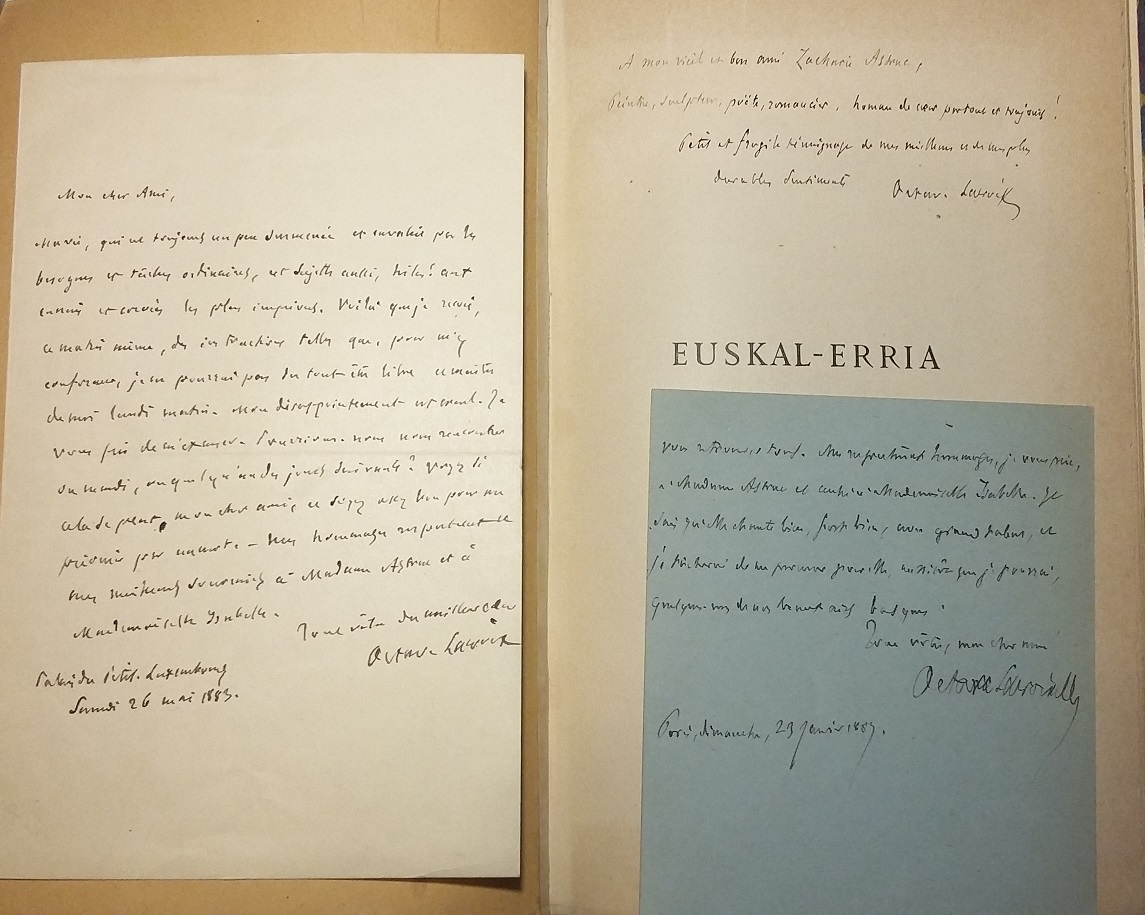 Mon cher Ami,
Marie, qui est toujours un peu surmenée et envahie par les
besognes et tâches ordinaires, est sujette aussi, hélas! aux
ennuis et corvées les plus imprévus. Voilà que je reçois,
ce matin même, des instructions telles que, pour m'y
conformer, je ne pourrai pas du tout être libre
lundi matin. Mon désappointement est cruel. Je
vous prie de m'excuser. Pourrions-nous nous rencontrer
ou mardi, ou quelqu'un des jours suivants? Voyez si
cela se peut, mon cher ami, et soyez assez bon pour me
prévenir par un mot. — Mes hommages respectueux et
mes meilleurs souvenirs à Madame Astruc et à
Mademoiselle Isabelle.
Tout vôtre du meilleur cœur
Octave Lacroix
Palais du Petit-Luxembourg
Samedi 26 mai 1883.
A mon vieil et bon ami Zacharie Astruc,
Peintre, sculpteur, poëte, romancier, homme de cœur partout et toujours!
Petit et fragile témoignage de mes meilleurs et de mes plus
durables sentiments
Octave Lacroix
EUSKAL-ERRIA
Mes respectueux hommages, je vous prie,
à Madame Astruc et aussi à Mademoiselle Isabelle. Je
sais qu'elle chante bien, fort bien, avec grand talent, et
je tâcherai de me procurer pour elle, aussitôt que je pourrai,
quelques-uns de nos beaux airs basques.
Tout vôtre, mon cher ami
Octave Lacroix
Paris, dimanche, 23 janvier 1887.